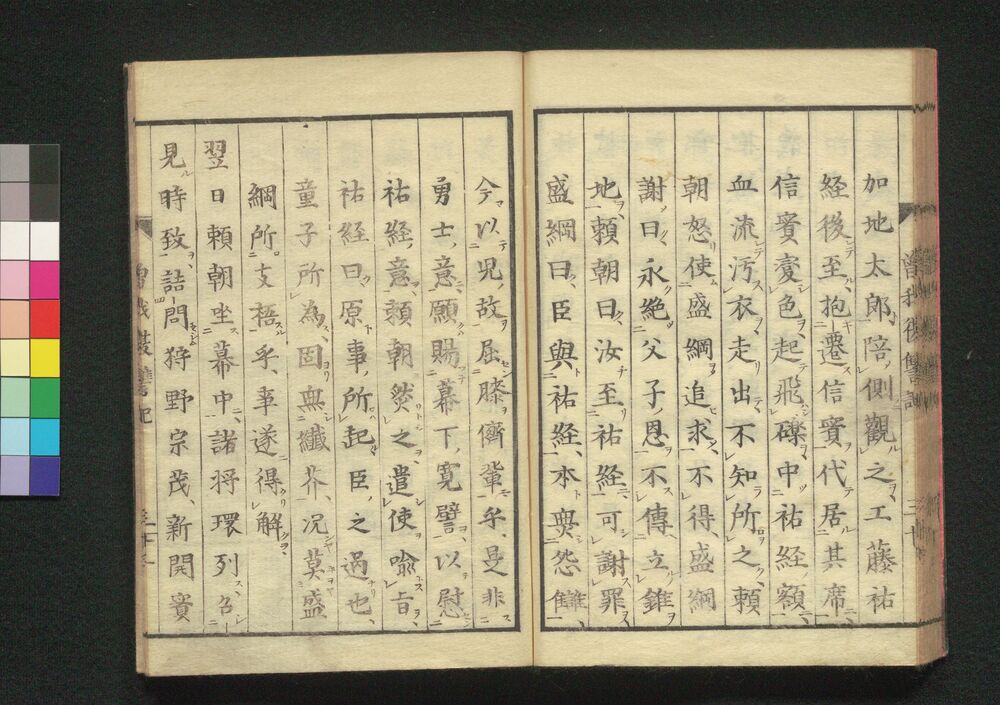 加地太郎、陪側觀之工藤祐
経後至、抱遷信實代居其席、
信實変色、起飛礫中祐経額、
血流汚衣走出不知所之、頼
朝怒使盛綱追求、不得、盛綱
謝曰、永絶父子恩不傳立錐
地、頼朝曰、汝至祐経可謝罪、
盛綱曰、臣與祐経、本無怨讎、
今以児故屈膝儕輩乎、是非
勇士意、願賜幕下寛譬、以慰
祐経意、頼朝然之遣使喩旨、
祐経曰、原事所起、臣之過也、
童子所為、固無纎芥、况莫盛
綱所支梧乎、事遂得解、
翌日頼朝坐幕中、諸将環列、召
見時致、詰問狩野宗茂、新開實